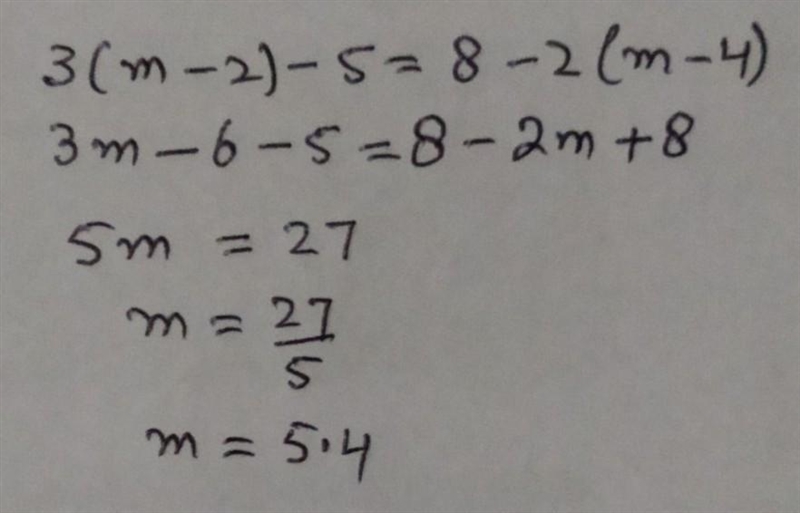 3(m-2)-5=8-2(m-4)
3m-6-5=8-2m+8
5m=27
m=27/5
m=5.4